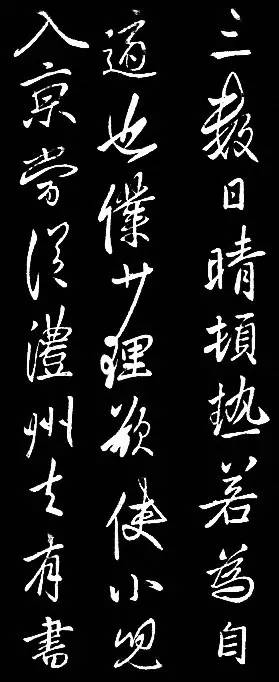 三數日晴頓熱若為自
適也僕少理欲使小兒
入京當從澧州去有書